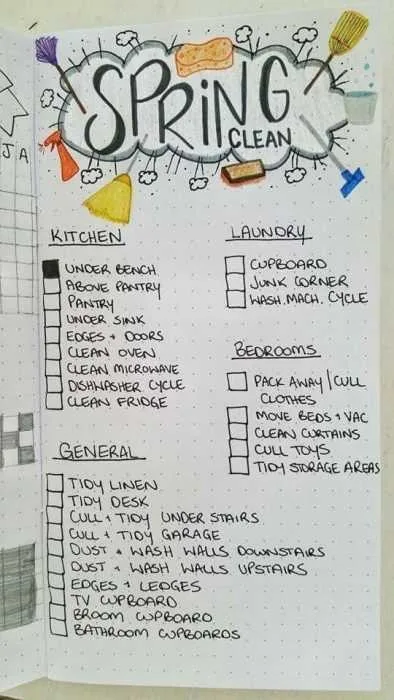 J A
SPRiNG
CLEAN
KITCHEN
UNDER BENCH
ABOVE PANTRY
PANTRY
UNDER SINK
EDGES + DOORS
CLEAN OVEN
CLEAN MICROWAVE
DISHWASHER CYCLE
CLEAN FRIDGE
LAUNDRY
CUPBOARD
JUNK CORNER
WASH.MACH. CYCLE
BEDROOMS
PACK AWAY / CULL
CLOTHES
MOVE BEDS + VAC
CLEAN CURTAINS
CULL TOYS
TIDY STORAGE AREAS
GENERAL
TIDY LINEN
TIDY DESK
CULL + TIDY UNDER STAIRS
CULL + TIDY GARAGE
DUST + WASH WALLS DOWNSTAIRS
DUST + WASH WALLS UPSTAIRS
EDGES + LEDGES
TV CUPBOARD
BROOM CUPBOARD
BATHROOM CUPBOARDS